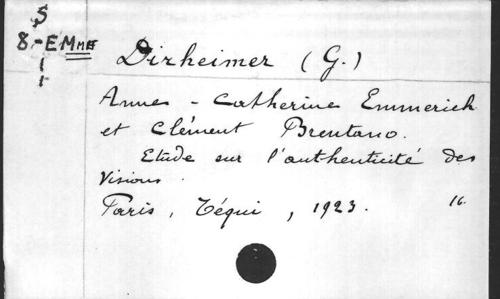 S
8-EMMEE
Dirheimer (G.)
Anne - Catherine Emmerich
et Clément Brentano.
Etude sur l'authenticité des
Visions
Paris, Téqui, 1923. 16